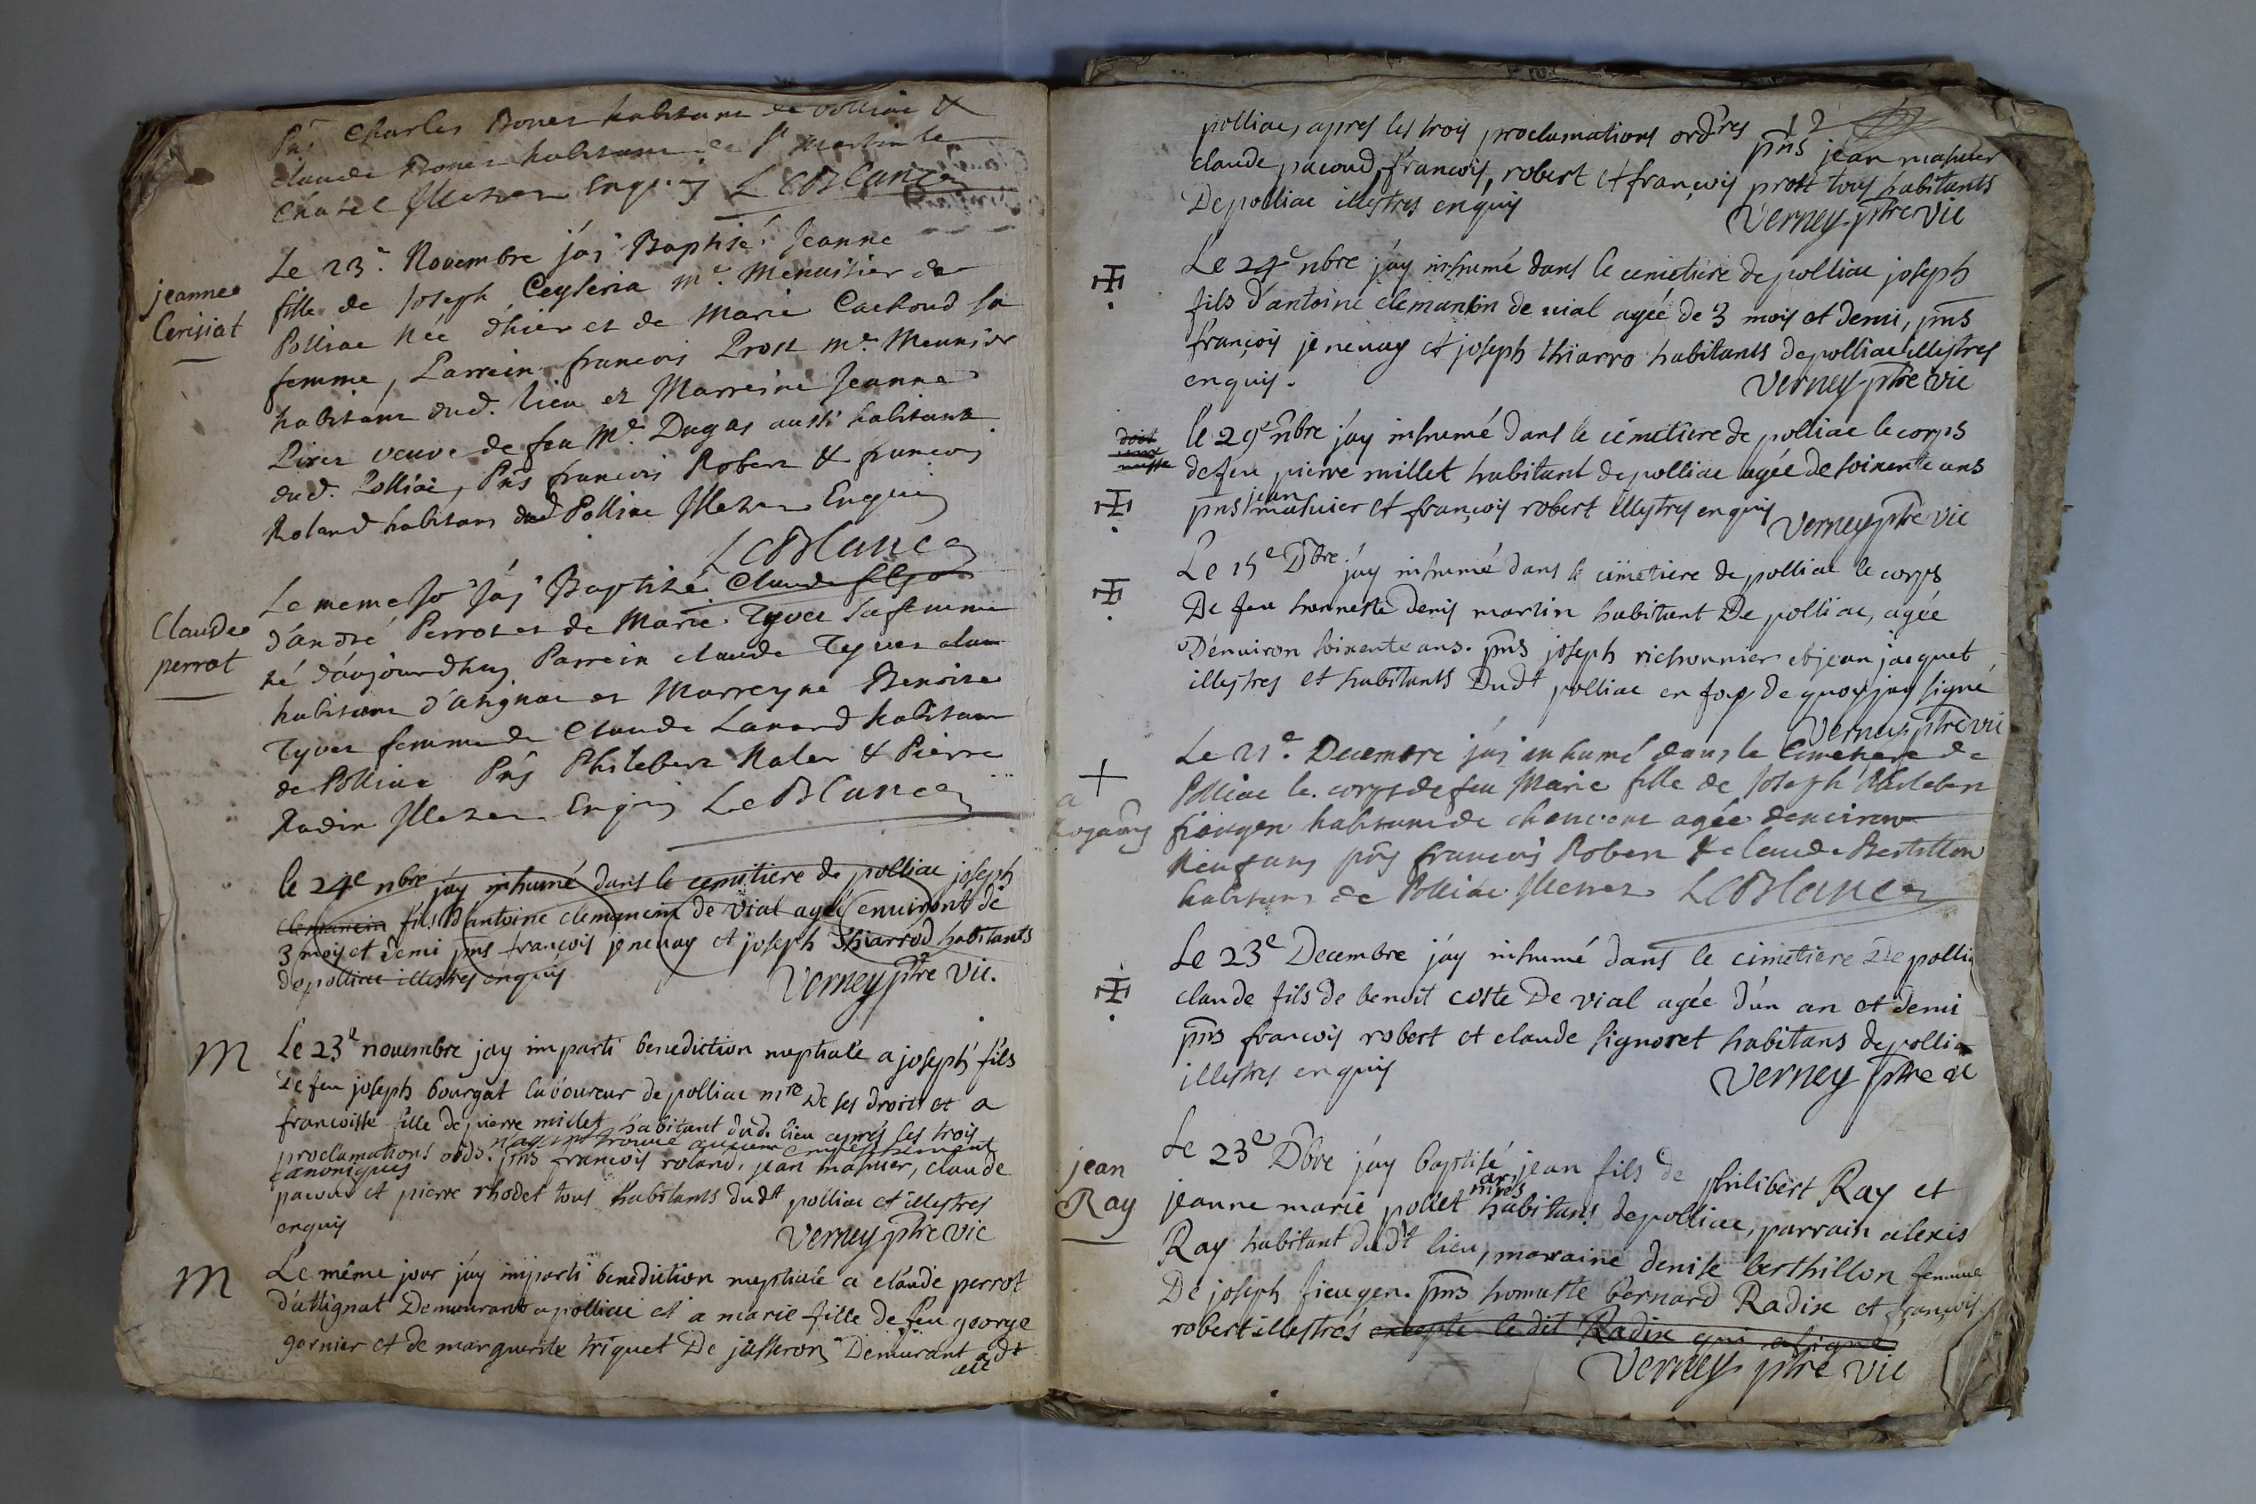 Pñs Charles Bouer habitant de Polliac &
claude Bouer habitant de St Martin le
Chatel Illetrez Enquis LeBlanc
jeanne
Cerisiat
Le 23e. Novembre j'ai Baptisé Jeanne
fille de Joseph Ceyseria me. Menuisier de
Polliac Née d'hier et de Marie Cachoud sa
femme, Parrein francois Prost me. Meunier
habitant dud. lieu et Marreine Jeanne
Pirer veuve de feu Me. Dugas aussi habitante
dud. Polliac, Pñs francois Robert & francois
Roland habitans dud Polliac Illetrez Enquis
LeBlanc
Claude
perrot
Le meme jo j'ai Baptisé Claude fils
d'andré Perrot et de Marie Tyver sa femme
né d'aujourdhuy Parrein claude Tyver
habitant d'atignac et Marreyne Benoite
Tyver femme de Claude Lanard habitant
de Polliac Pñs Philebert Rater & Pierre
Radix Illetrez Enquis LeBlanc
le 24e nbre jay inhumé dans le cemitiere de polliac joseph
clemancin fils d'antoine clemancin de vial agée environt de
3 mois et demi pñs françois jenevay et joseph thiarrod habitants
de polliac illestres enquis
Verney ptre Vic.
M
Le 23e novembre jay imparti benediction nuptiale a joseph fils
De feu joseph bourgat laboureur de polliac mre De ses droits et a
francoise fille de pierre millet habitant dud. lieu aprés les trois
proclamations ord. n'ayant trouvé aucun empeschement
canoniques pñs francois roland, jean mahuier, claude
pacoud et pierre rhodet tous habitants dudt polliac et illestres
enquis
Verney ptre vic
M
Le même jour j'ay imparti benediction nuptiale a claude perrot
d'attignat Demeurant a polliac et a marie fille de feu george
gornier et de marguerite triquet De jasseron Demurant audt
polliac, apres les trois proclamations ordres pñs jean mahuier
12
claude pacoud, francois, robert et françois prost tous habitants
De polliac illestres enquis
Verney ptre vic
Le 24e nbre j'ay inhumé dans le cemetiere de polliac joseph
fils d'antoine clemantin de vial agée de 3 mois et demi, pñs
françois jenevay et joseph thiarro habitants de polliac illestres
enquis.
Verney ptre vic
doit
une
messe
le 29e nbre j'ay inhumé dans le cimetiere de polliac le corps
de feu pierre millet habitant de polliac agée de soixente ans
pñs jean mahuier et françois robert illestres enquis
Verney ptre vic
Le 15e Dbre j'ay inhumé dans le cimetiere de polliac le corps
De feu honneste denis martin habitant De polliac, agée
D'environ soixente ans. pñs joseph richonnier et jean jacquet
illestres et habitants Dudt polliac en foy de quoy jay signé
Verney ptre vic
a
Le 21e. Decembre j'ai inhumé dans le Cimetiere de
Polliac le corps de feu Marie fille de Joseph Philebert
fieugen habitant de chenvent agée denviron
Neuf ans pñs francois Robert & claude Bertillon
habitans de Polliac Illetrez LeBlanc
Le 23e Decembre j'ay inhumé dans le cimetiere De pollia
claude fils de benoit coste De vial agée d'un an et demi
pñs francois robert et claude signoret habitans de pollia
illestres enquis
Verney ptre vic
jean
Ray
Le 23e Dbre j'ay baptisé jean fils de philibert Ray et
jeanne marie pollet mariés habitans de polliac, parrain alexis
Ray habitant dudt lieu, marraine denise berthillon femme
De joseph fieugen. pñs honneste bernard Radix et françois
robert illestrés excepté le dit Radix qui a signé
Verney ptre vic